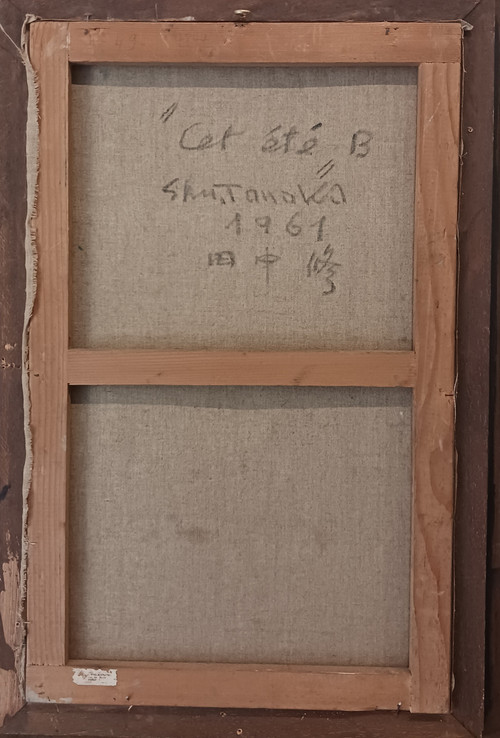 "Cet été B"
Shu.Tanaka
1961
田中 修